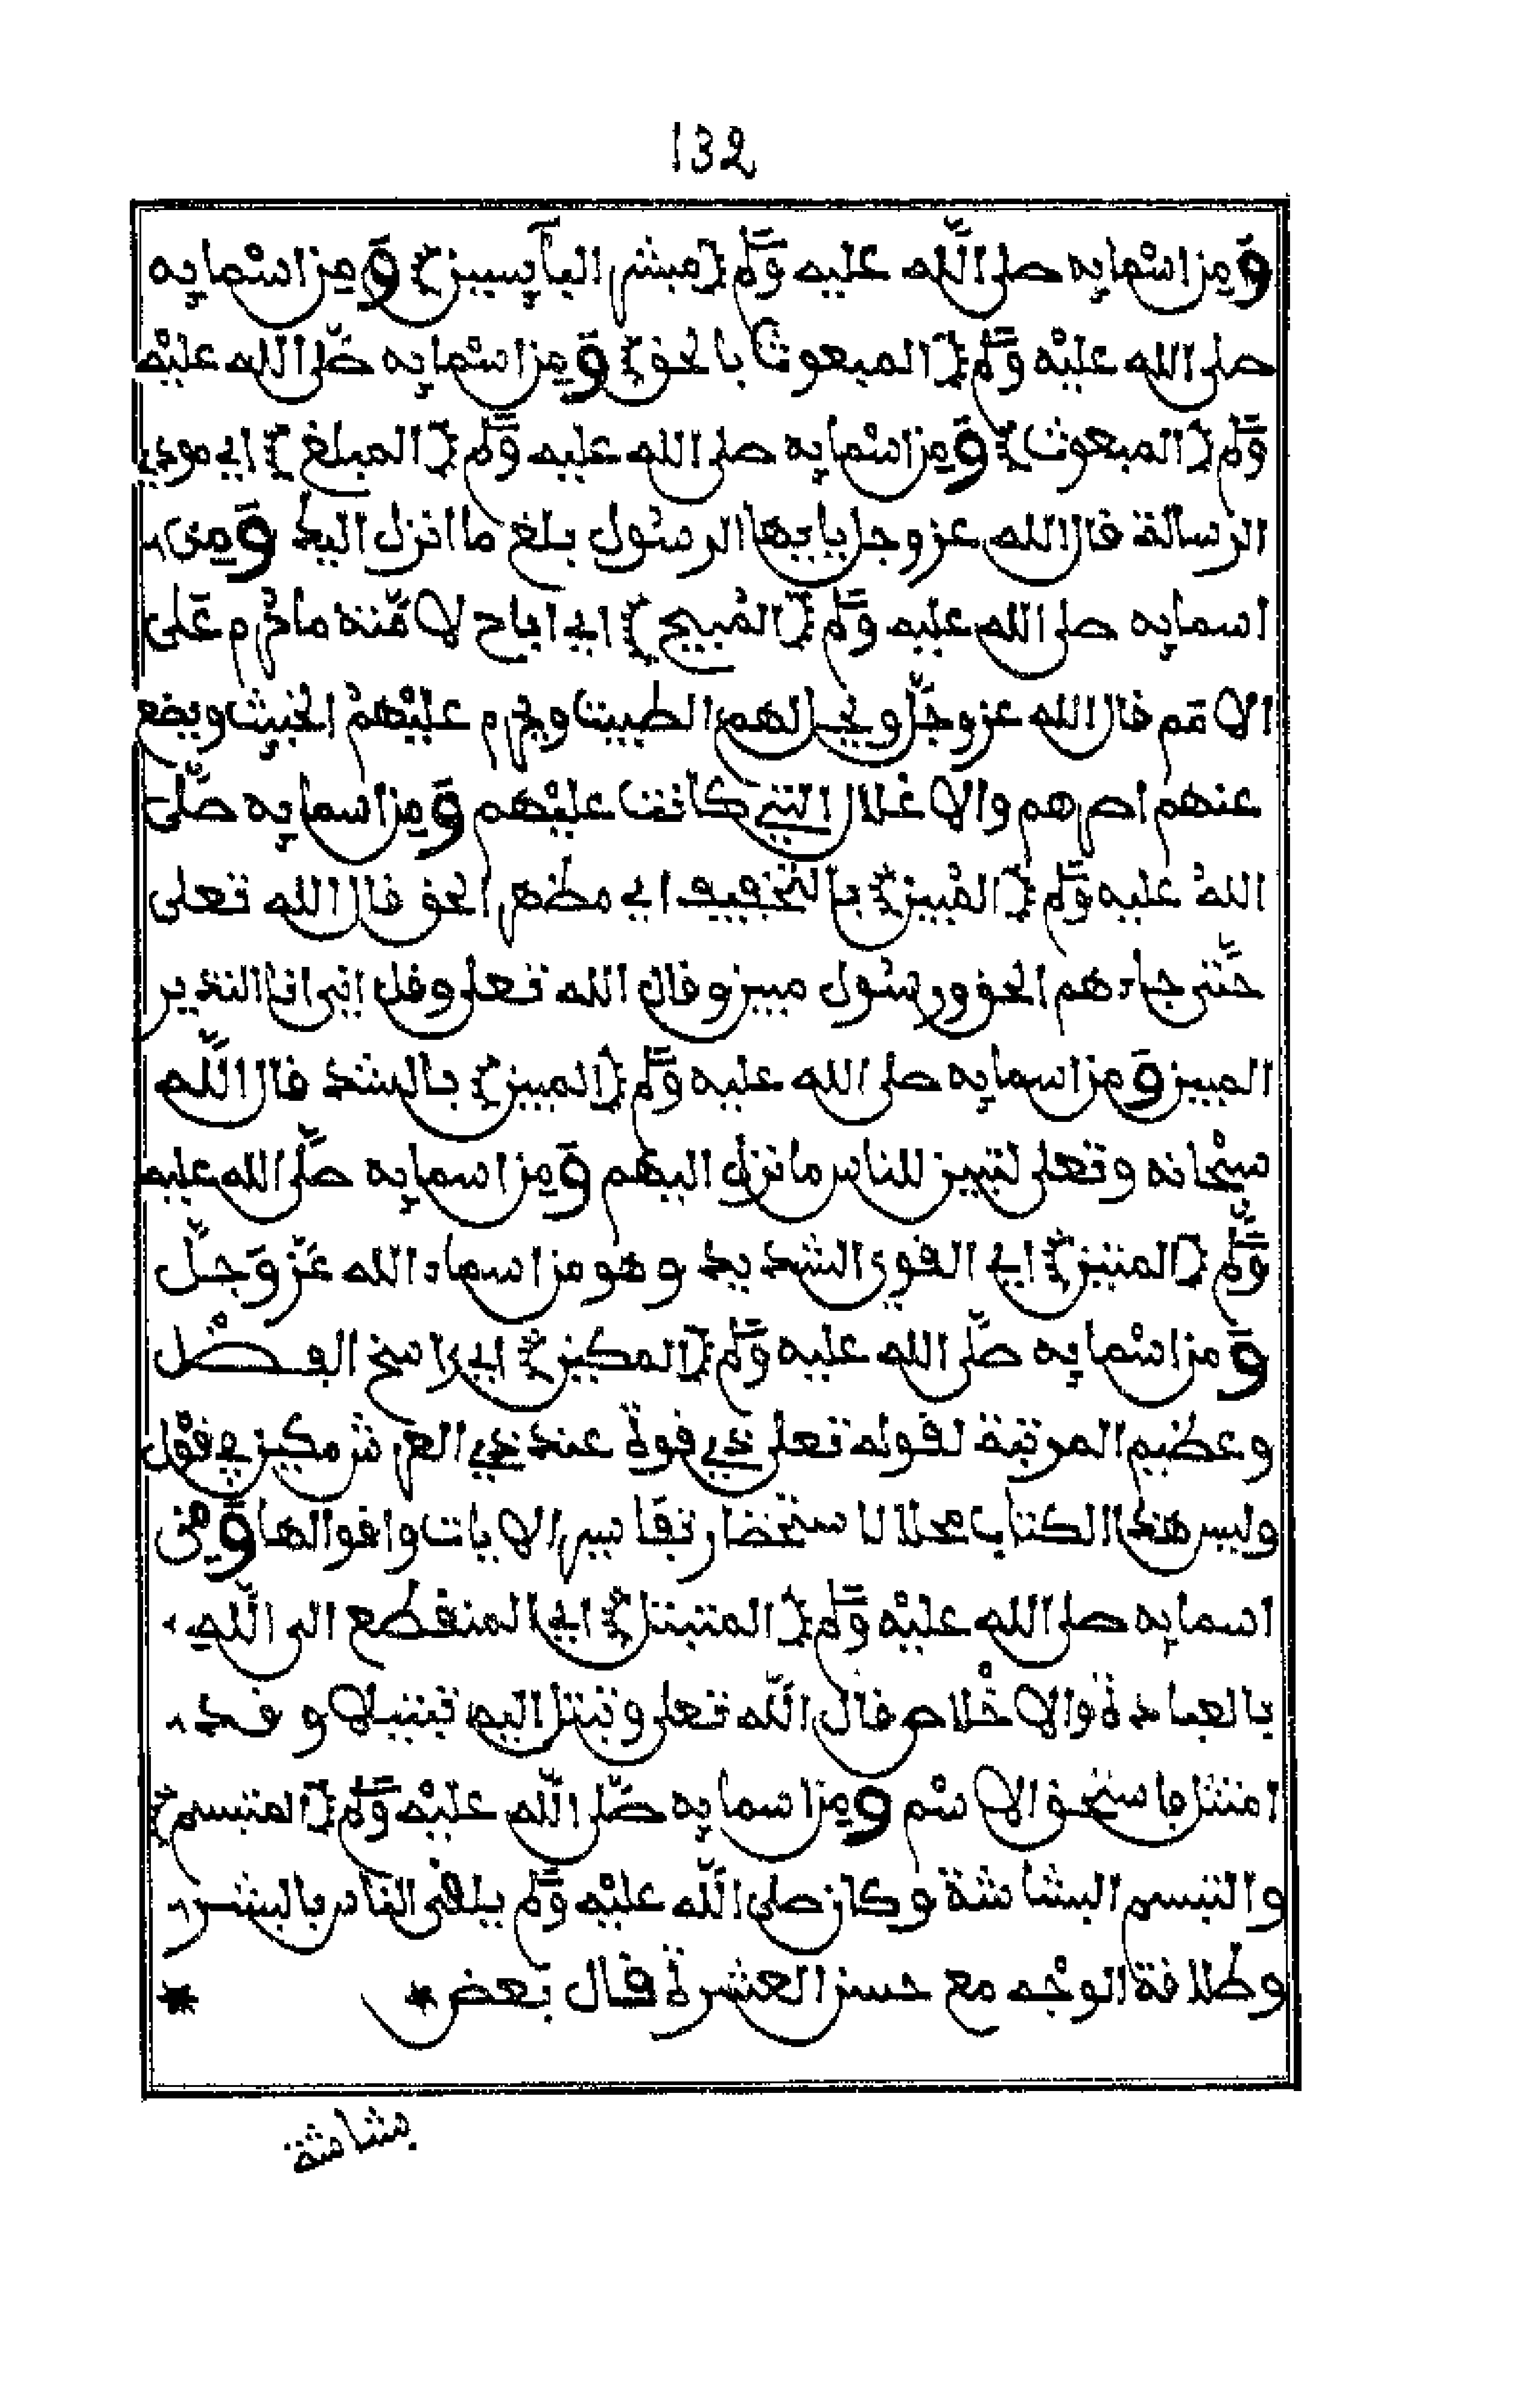 132
ومن اسمايه صلى الله عليه وسلم {مبشر اليآيسين} ومن اسمايه
صلى الله عليه وسلم {المبعوث بالحق} ومن اسمايه صلى الله عليه
وسلم {المبعوث} ومن اسمايه صلى الله عليه وسلم {المبلغ} اي مودي
الرسالة قال الله عز وجل يايها الرسول بلغ ما انزل اليك ومن
اسمايه صلى الله عليه وسلم {المبيح} اي اباح لامته ما حرم على
الامم قال الله عز وجل ويحل لهم الطيبت ويحرم عليهم الخبيث ويضع
عنهم اصرهم والاغلال التي كانت عليهم ومن اسمايه صلى
الله عليه وسلم {المبين} بالتخفيف اي مظهر الحق قال الله تعلى
حتى جاءهم الحق ورسول مبين وقال الله تعلى وقل اني انا النذير
المبين ومن اسمايه صلى الله عليه وسلم {المبين} بالشد قال الله
سبحانه وتعلى لتبين للناس ما نزل اليهم ومن اسمايه صلى الله عليه
وسلم {المتين} اي القوي الشديد وهو من اسماء الله عز وجل
ومن اسمايه صلى الله عليه وسلم {المكين} اي راسخ الفضل
وعظيم المرتبة لقوله تعلى ذي قوة عند ذي العرش مكين في قول
وليس هذا الكتاب محلا لاستحضار تفاسير الايات واقوالها ومن
اسمايه صلى الله عليه وسلم {المتبتل} اي المنقطع الى الله
بالعبادة والاخلاص قال الله تعلى وتبتل اليه تبتيلا وقد
امتثل فاستحق الاسم ومن اسمايه صلى الله عليه وسلم {المتبسم}
والتبسم البشاشة وكان صلى الله عليه وسلم يلقى الناس بالبشر
وطلاقة الوجه مع حسن العشرة قال بعض * *
بشاشة